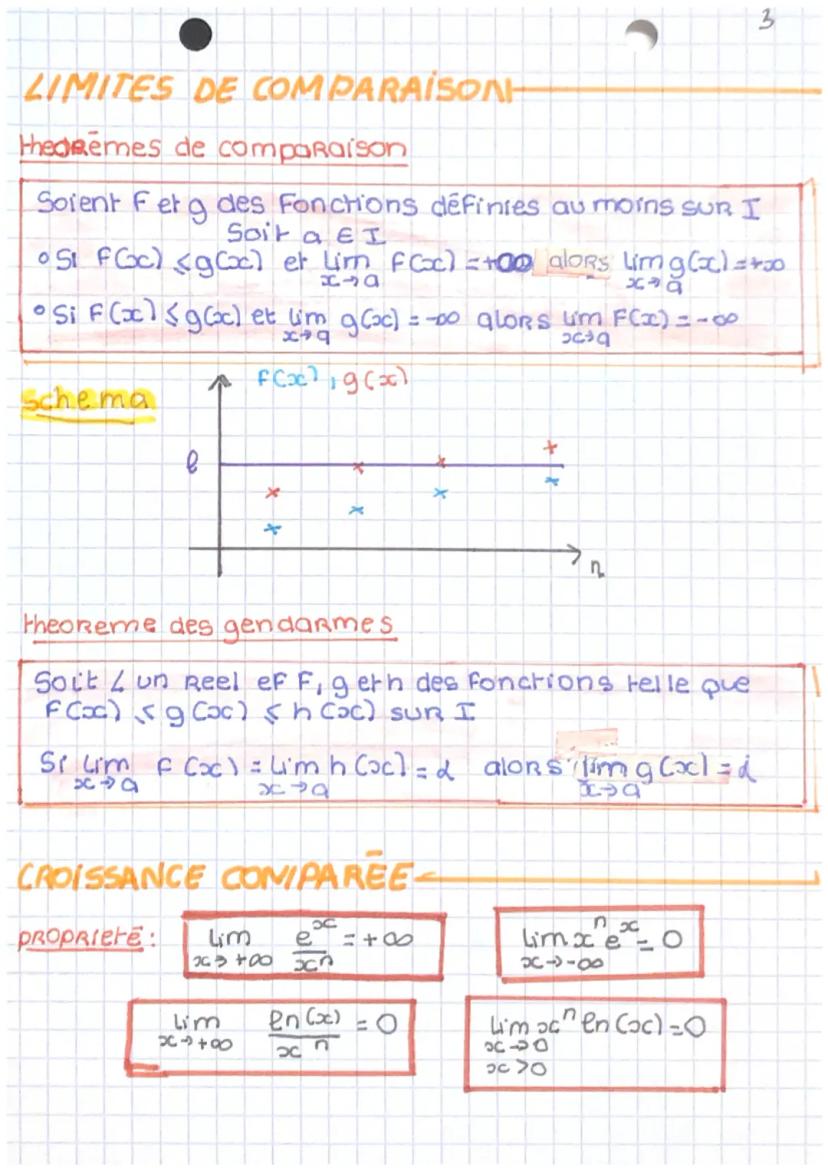 3
LIMITES DE COMPARAISON
theorèmes de comparaison
Soient f et g des fonctions définies au moins sur I
Soit a ∈ I
• Si f(x) ≤ g(x) et lim f(x) = +∞ alors lim g(x) = +∞
x→a x→a
• Si f(x) ≤ g(x) et lim g(x) = -∞ alors lim f(x) = -∞
x→a x→a
schema
f(x), g(x)
l
n
theoreme des gendarmes
Soit L un Reel et f, g et h des fonctions telle que
f(x) ≤ g(x) ≤ h(x) sur I
Si lim f(x) = lim h(x) = L alors lim g(x) = L
x→a x→a x→a
CROISSANCE COMPARÉE
PROPRIETÉ : lim e^x/x^n = +∞ lim x^n e^x = 0
x→+∞ x→-∞
lim ln(x)/x^n = 0 lim x^n ln(x) = 0
x→+∞ x→0
x>0